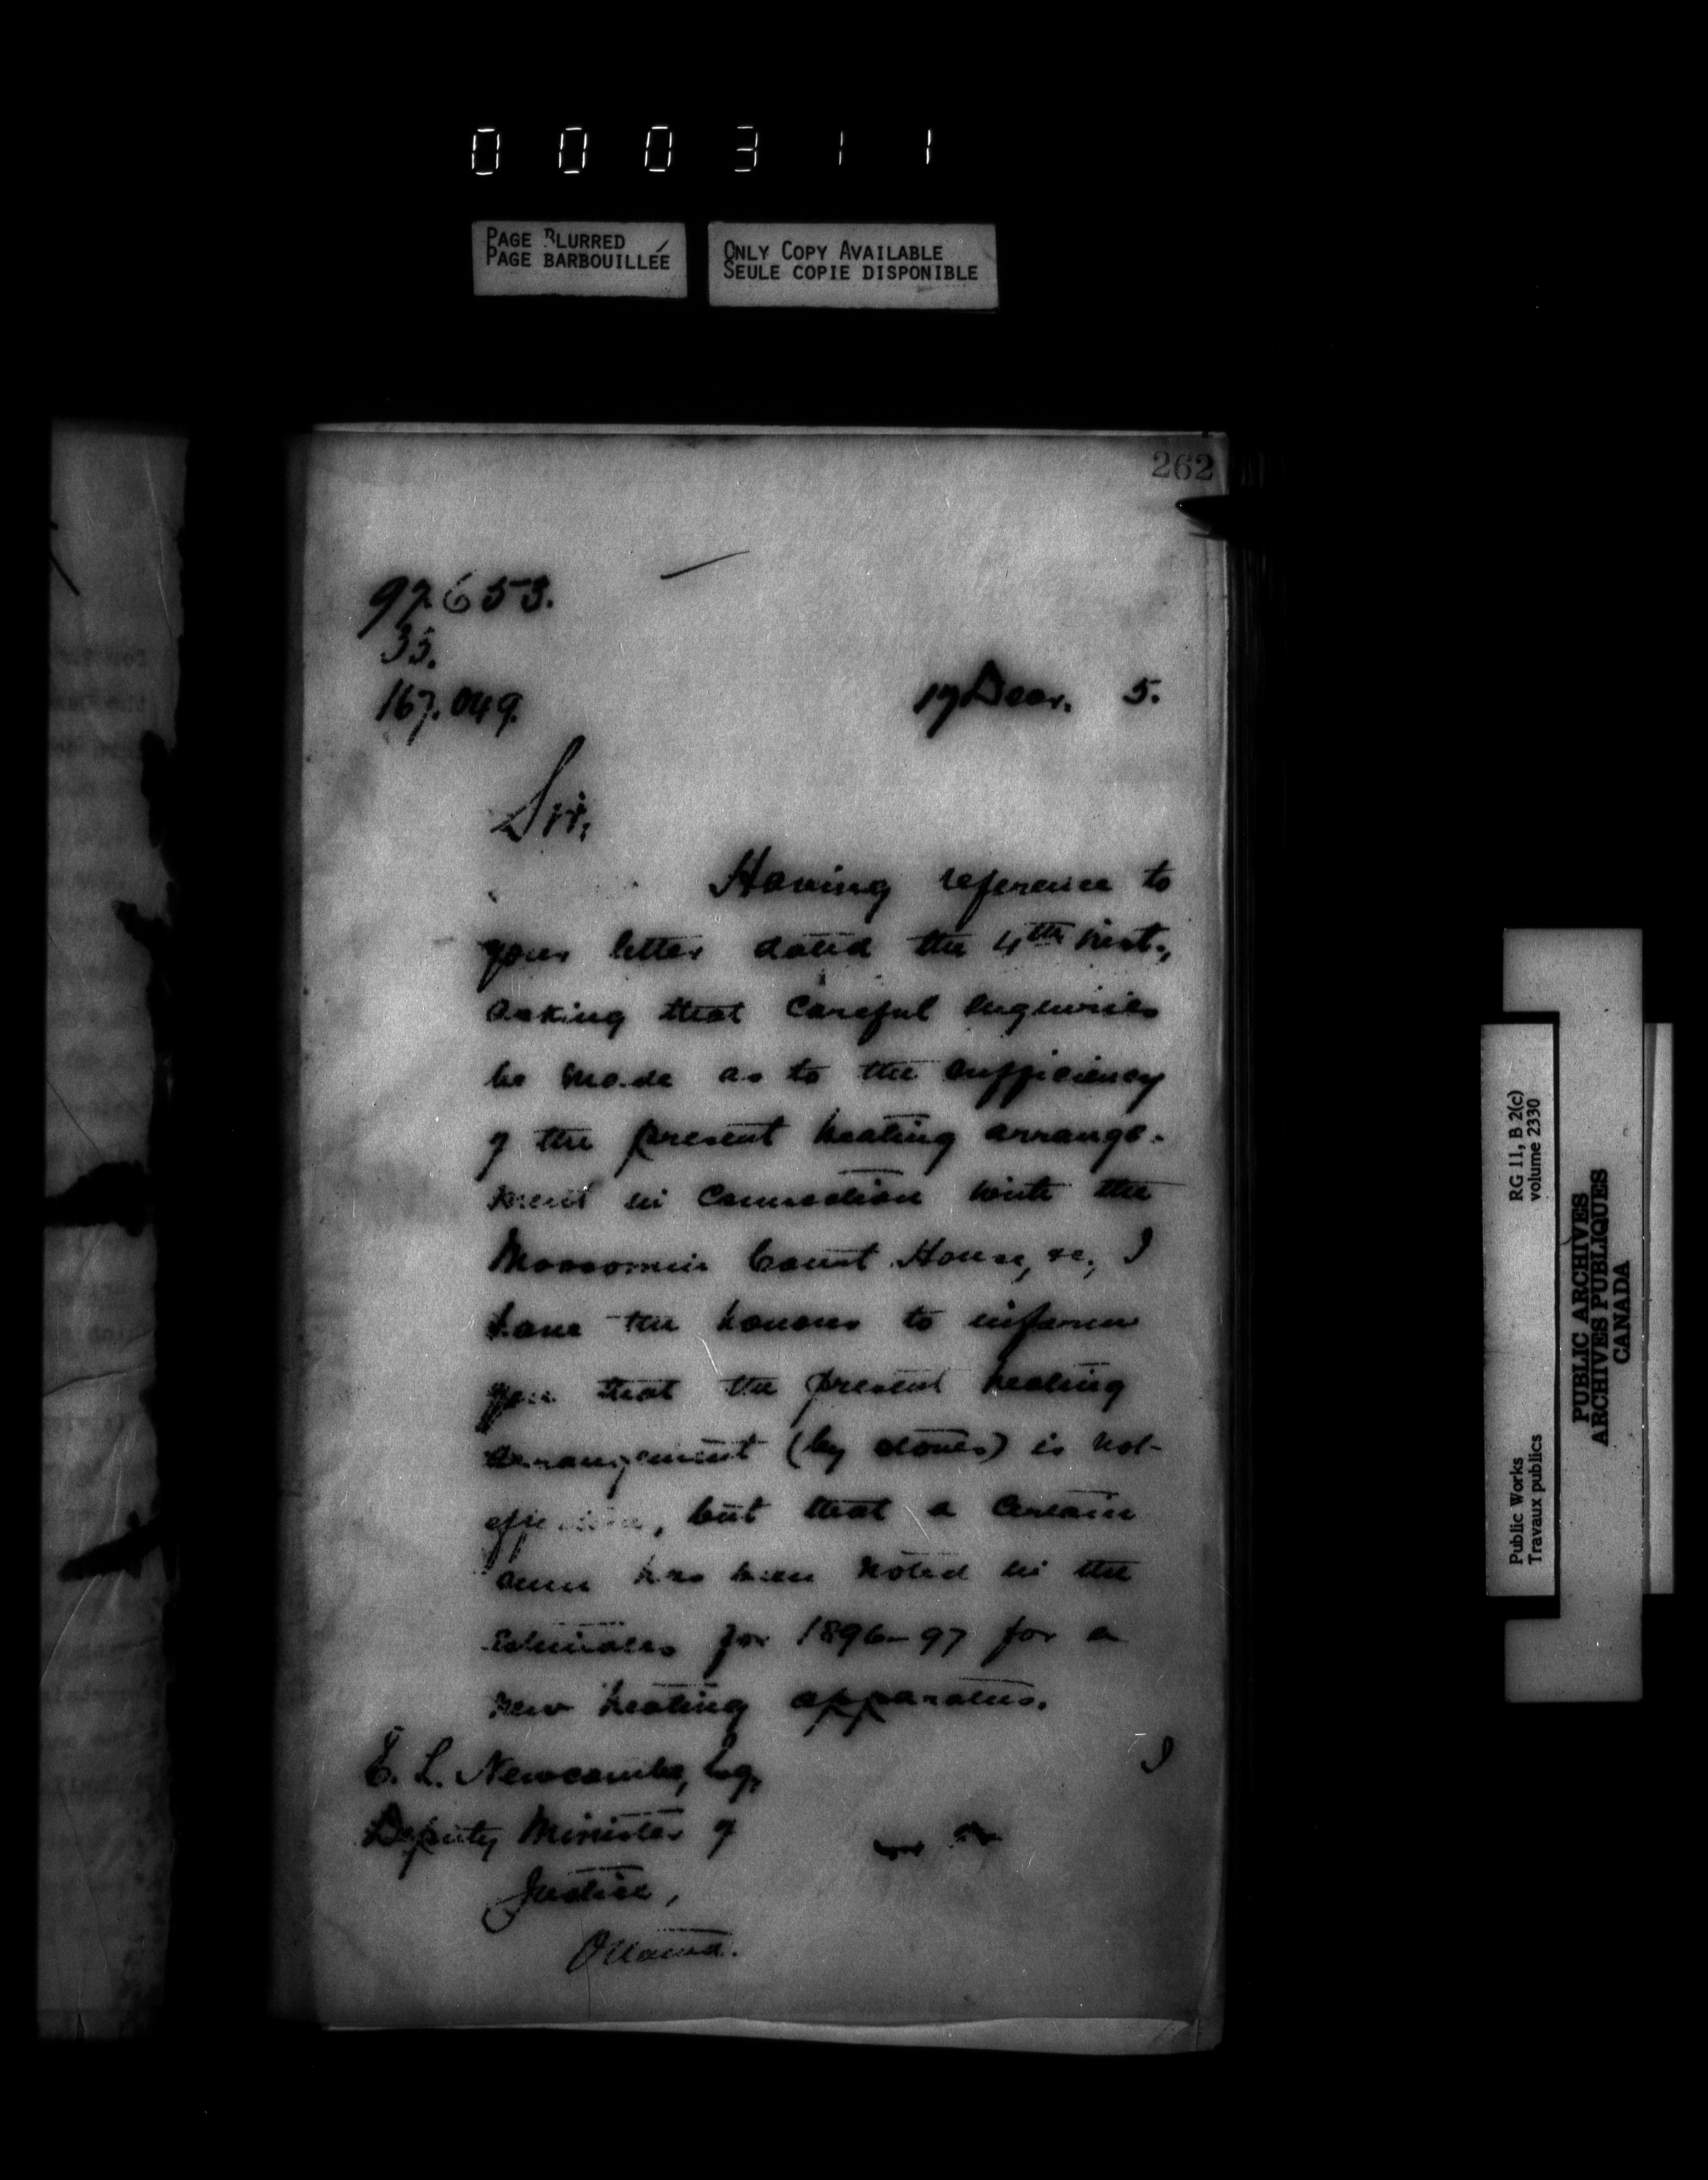 000311
PAGE BLURRED
PAGE BARBOUILLÉE
ONLY COPY AVAILABLE
SEULE COPIE DISPONIBLE
262
97.653.
35.
167.049.
17 Decr. 5.
Sir,
Having reference to
your letter dated the 4th inst.,
asking that careful enquiries
be made as to the sufficiency
of the present heating arrange-
ment in connection with the
Moosomin Court House, &c., I
have the honour to inform
you that the present heating
arrangement (by stoves) is not
, but that a certain
sum has been noted in the
Estimates for 1896-97 for a
new heating apparatus.
I
E. L. Newcombe, Esq,
Deputy Minister of
Justice,
Ottawa.
Public Works
Travaux publics
RG 11, B 2(c)
volume 2330
PUBLIC ARCHIVES
ARCHIVES PUBLIQUES
CANADA